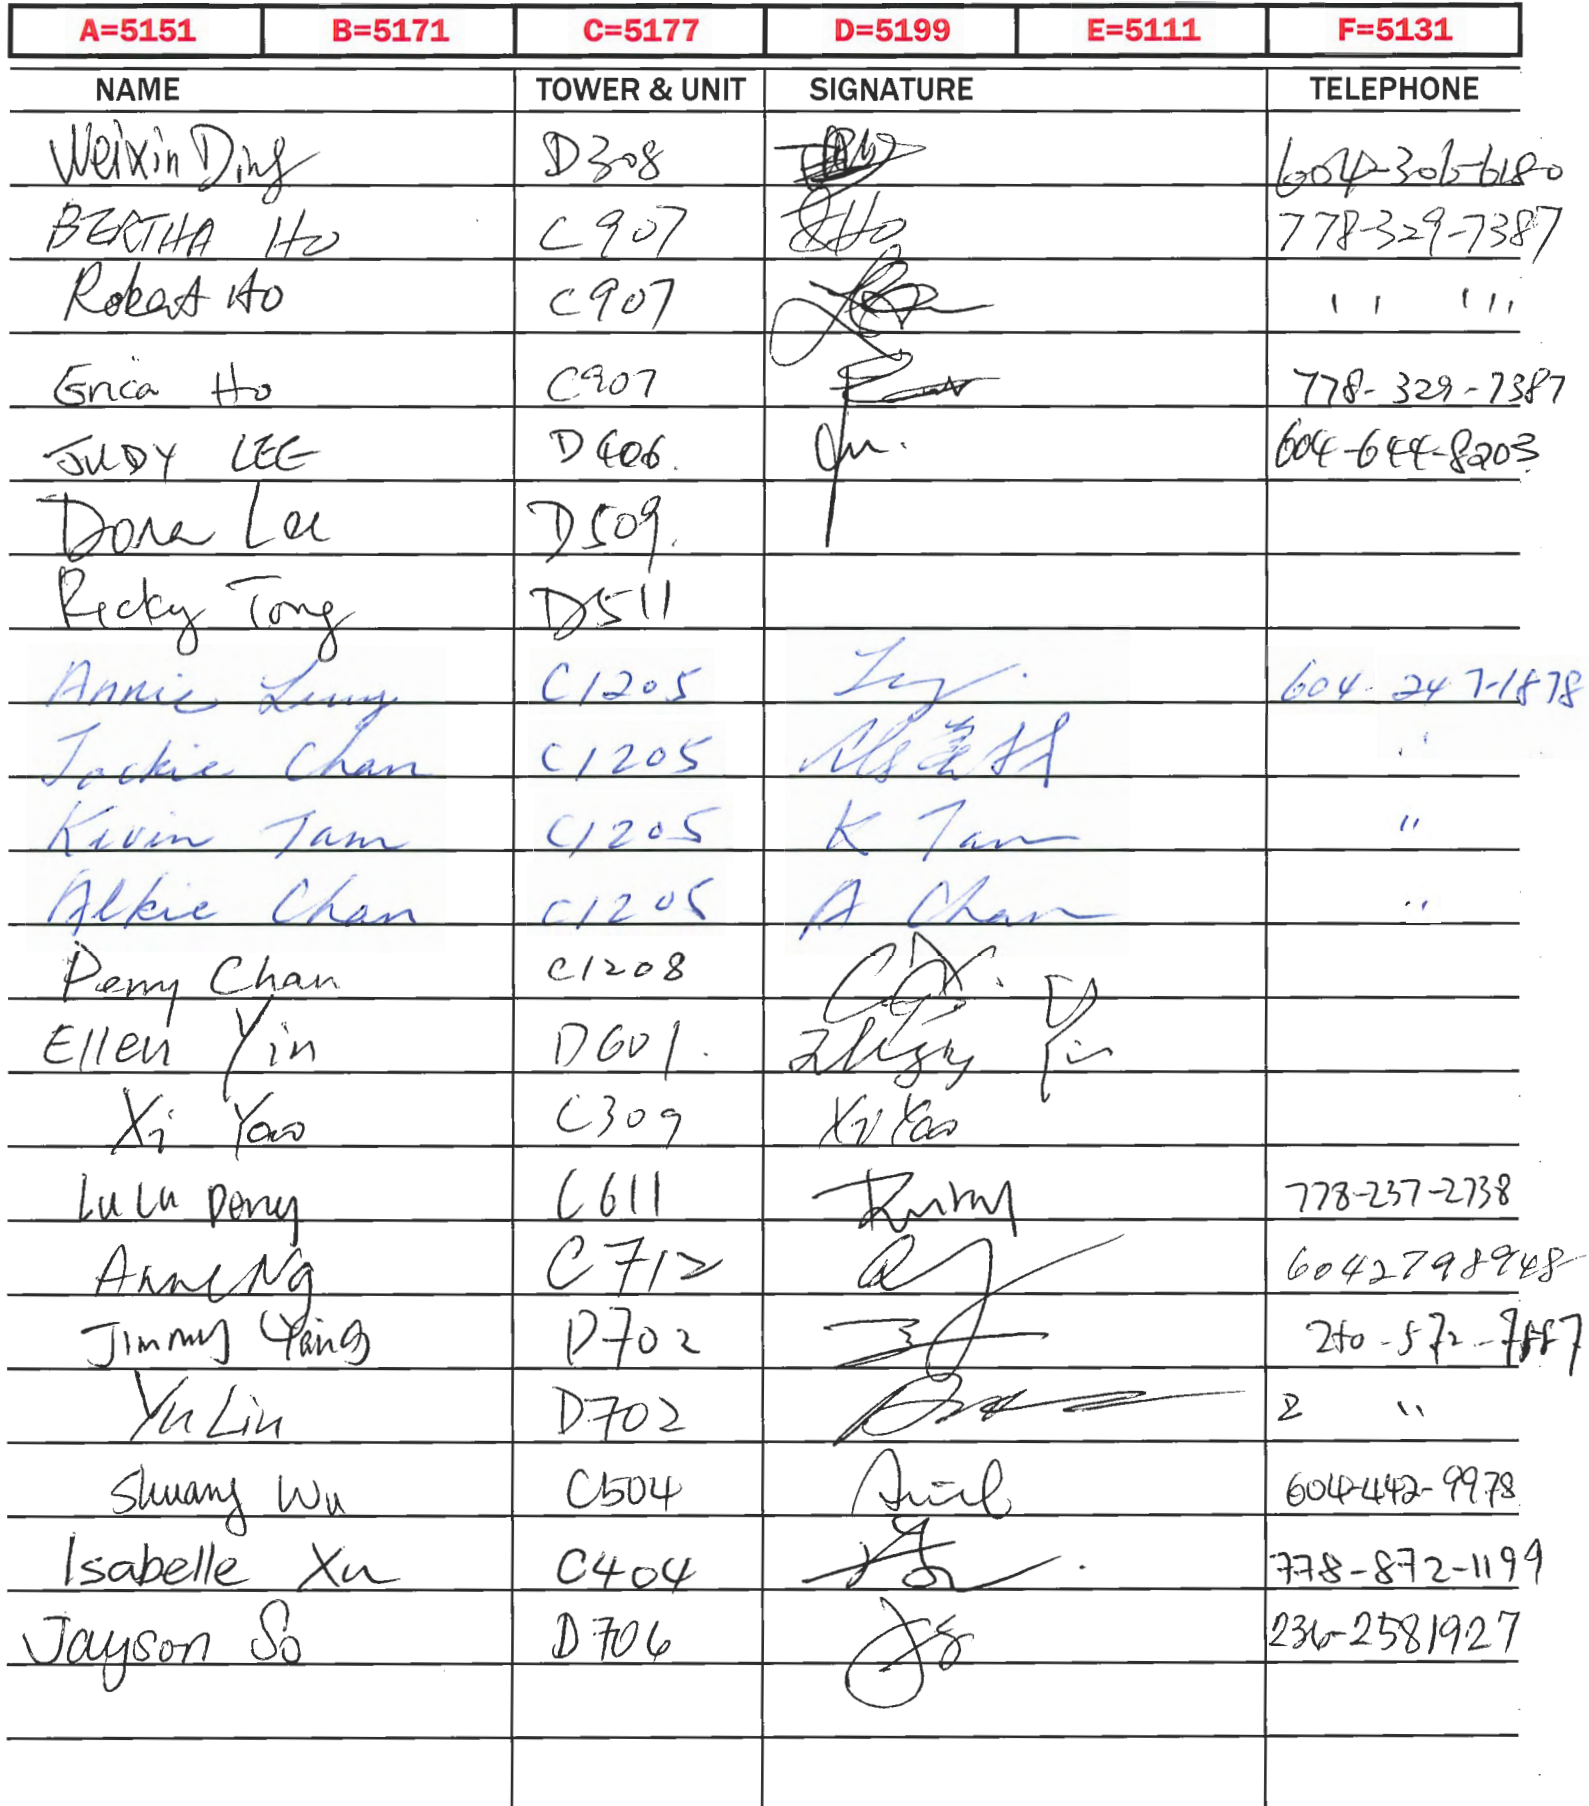 A=5151 B=5171 C=5177 D=5199 E=5111 F=5131
NAME TOWER & UNIT SIGNATURE TELEPHONE
Weixin Ding D308 604-306-6180
BERTHA Ho C907 BHo 778-329-7387
Robert Ho C907 " "
Erica Ho C907 778-329-7387
JUDY LEE D406. 604-644-8203
Dora Lee D509.
Ricky Tong D511
Annie Leung C1205 604-247-1878
Jackie Chan C1205 "
Kevin Tam C1205 K Tam "
Alkie Chan C1205 A Chan "
Perry Chan C1208
Ellen Yin D601. Yin
Xi Yao C309 Xi Yao
LuLu Deng C611 778-237-2738
Anne Ng C712 6042798948
Jimmy Yang D702 250-572-7887
Yu Lin D702 "
Shuang Wu C504 604-442-9978
Isabelle Xu C404 778-872-1199
Jayson So D706 JS 236-2581927